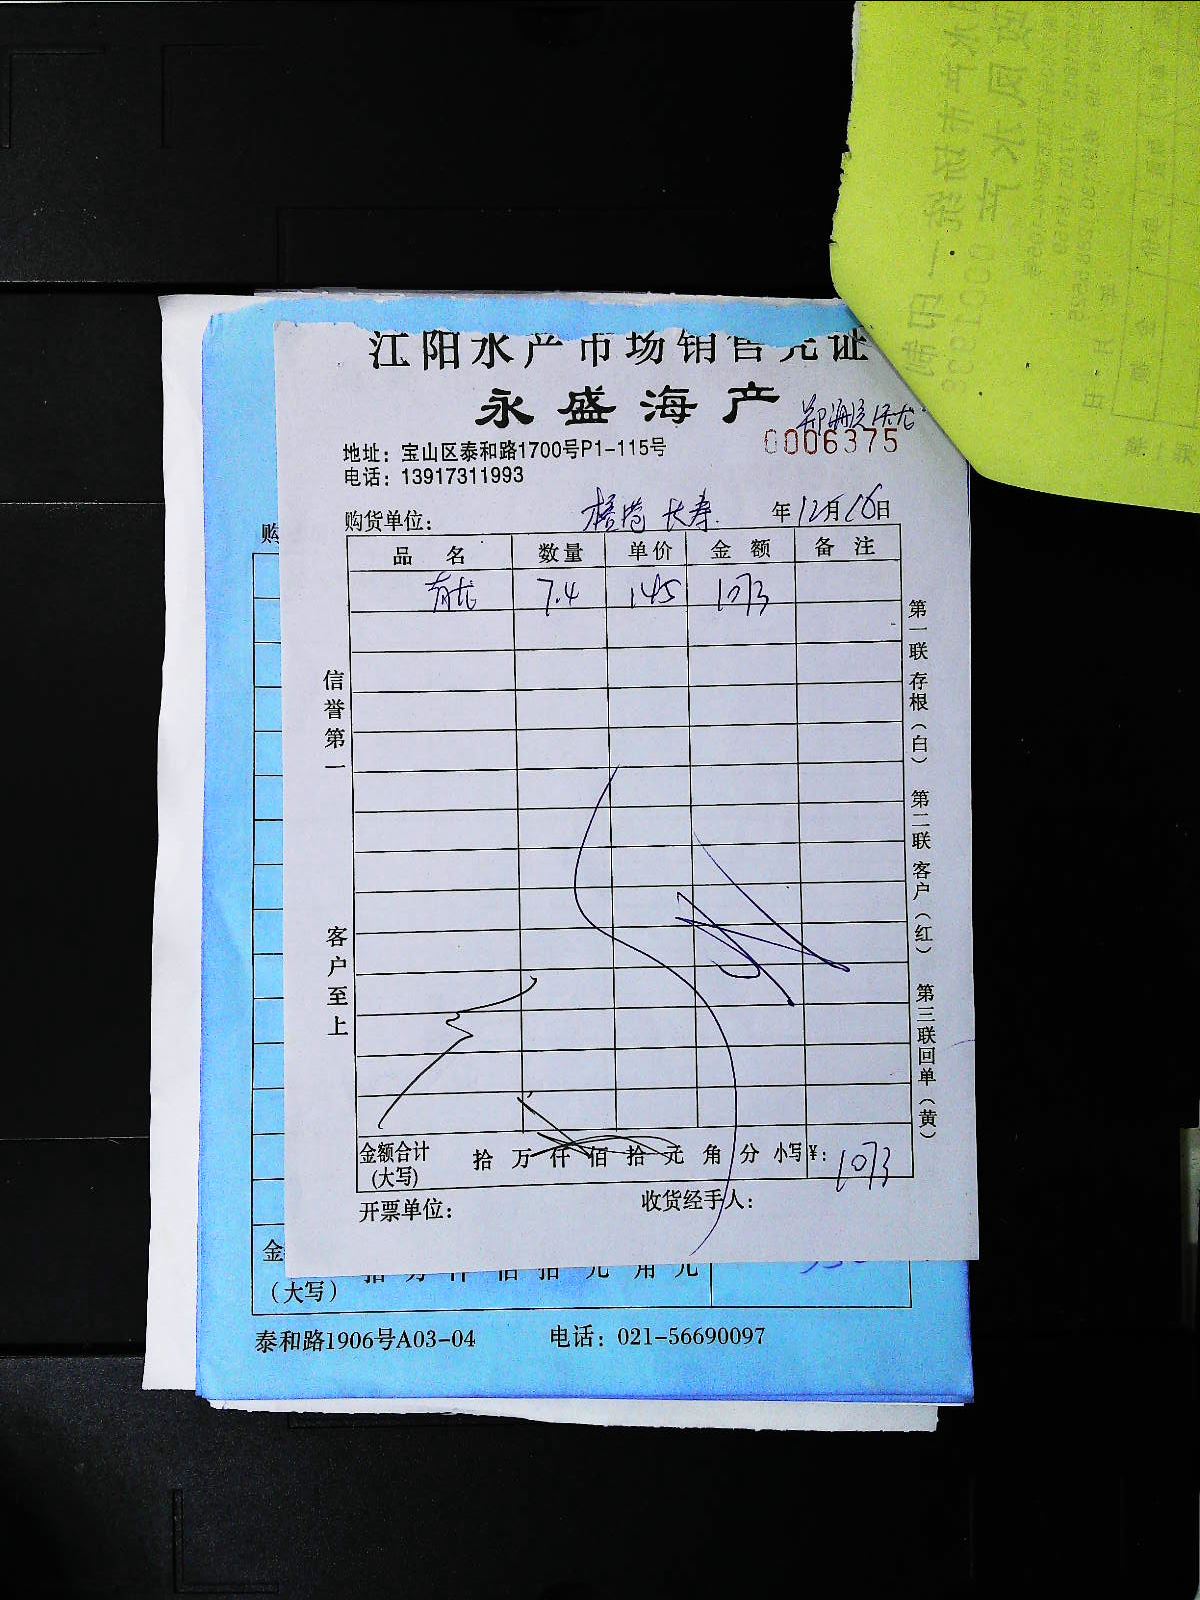 江阳水产市场销售凭证
永盛海产
0006375
地址：宝山区泰和路1700号P1-115号
电话：13917311993
购货单位： 长寿 年12月16日
品名 数量 单价 金额 备注
青龙 7.4 145 1073
信誉第一 客户至上
第一联 存根（白） 第二联 客户（红） 第三联回单（黄）
金额合计（大写） 拾 万 仟 佰 拾 元 角 分 小写¥：1073
开票单位： 收货经手人：
购
金
（大写） 拾 万 仟 佰 拾 元 角 元
泰和路1906号A03-04 电话：021-56690097